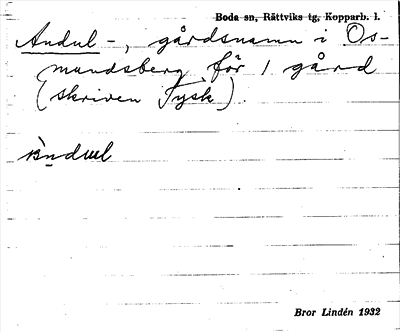 Boda sn, Rättviks tg, Kopparb. l.
Andul -, gårdsnamn i Os-
mundsberg för 1 gård
(skriven Tysk).
Bror Lindén 1932